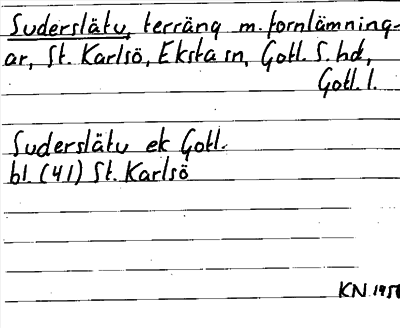 Suderslätu, terräng m. fornlämning-
ar, St. Karlsö, Eksta sn, Gotl. S. hd,
Gotl. l.
Suderslätu ek Gotl.
bl. (41) St. Karlsö
KN 1950